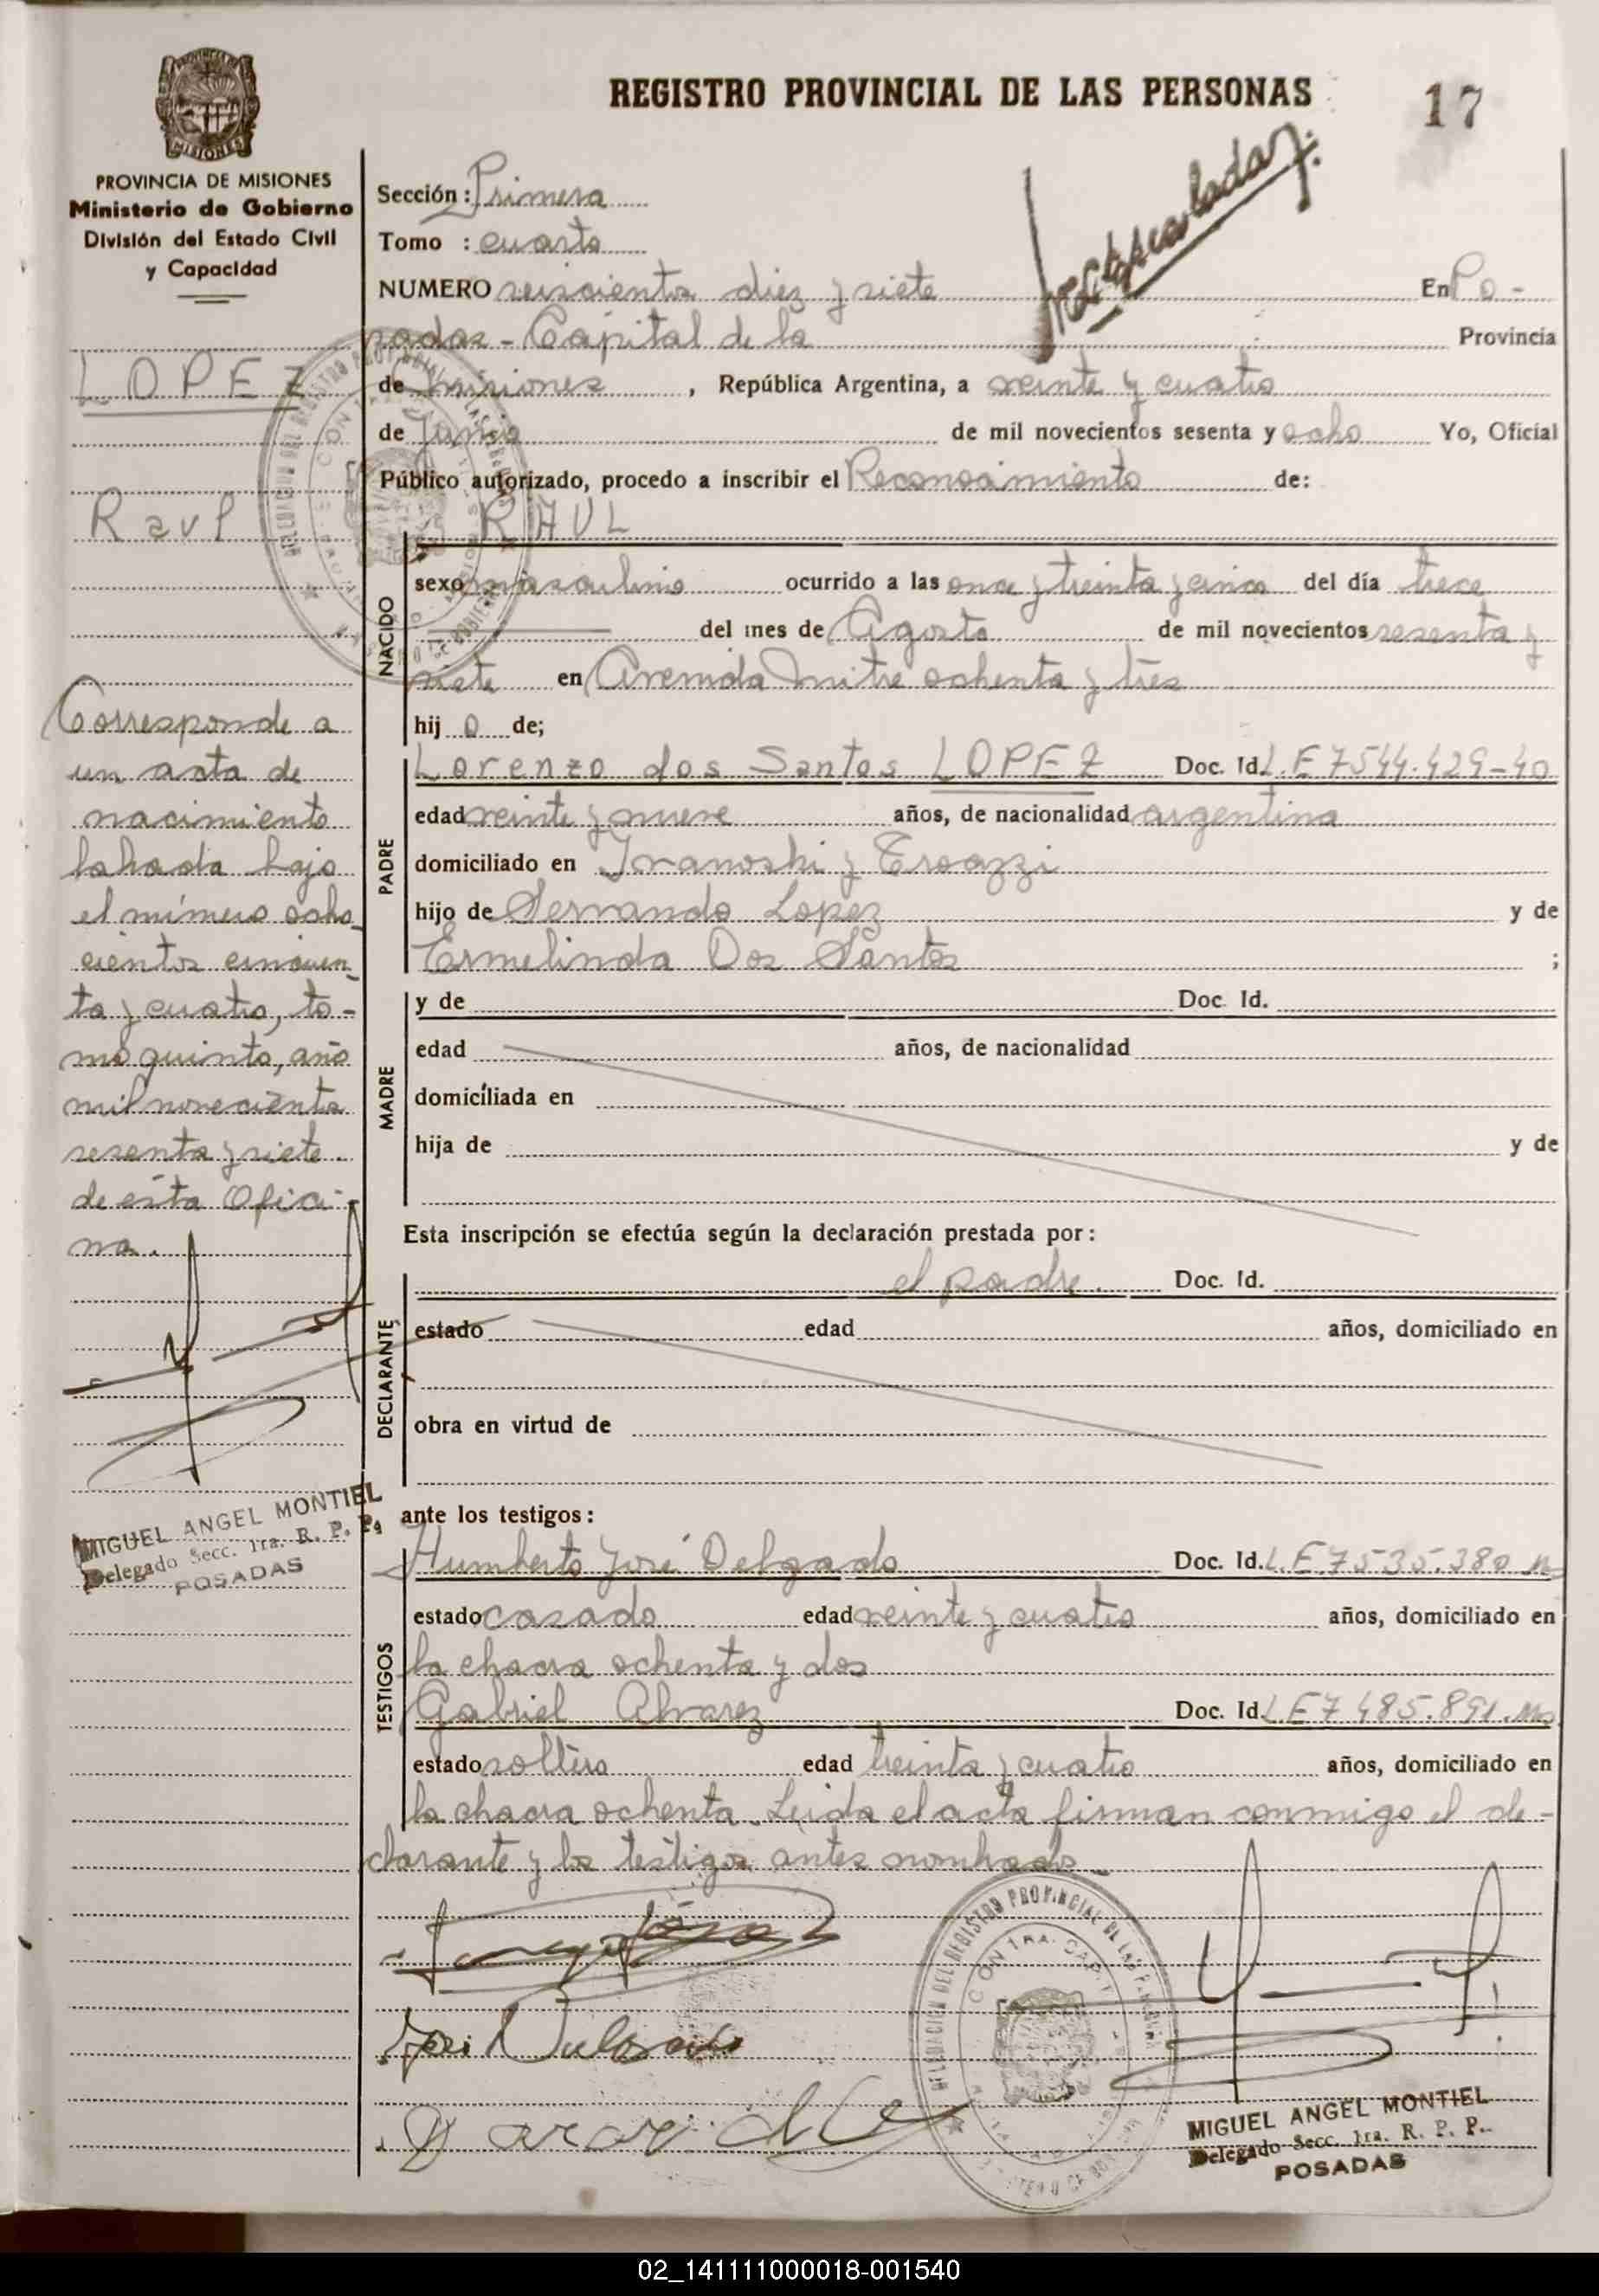 REGISTRO PROVINCIAL DE LAS PERSONAS
17
MISIONES
PROVINCIA DE MISIONES
Ministerio de Gobierno
División del Estado Civil
y Capacidad
LOPEZ
Raul
Corresponde a
un acta de
nacimiento
labrada bajo
el número ocho
cientos cincuen
ta y cuatro, to-
mo quinto, año
mil novecientos
sesenta y siete.
de esta Ofici-
na.
MIGUEL ANGEL MONTIEL
Delegado Secc. 1ra. R. P. P.
POSADAS
Sección: Primera
Tomo : cuarto
NUMERO seiscientos diez y siete En Po-
sadas - Capital de la Provincia
de Misiones, República Argentina, a veinte y cuatro
de Junio de mil novecientos sesenta y ocho Yo, Oficial
Público autorizado, procedo a inscribir el Reconocimiento de:
RAUL
NACIDO
sexo masculino ocurrido a las once y treinta y cinco del día trece
del mes de Agosto de mil novecientos sesenta y
siete en Avenida Mitre ochenta y tres
hij o de;
PADRE
Lorenzo dos Santos LOPEZ Doc. Id. L.E 7544.429-40
edad veinte y nueve años, de nacionalidad argentina
domiciliado en Ivanoski y
hijo de Servando Lopez y de
Ermelinda Dos Santos ;
MADRE
y de Doc. Id.
edad años, de nacionalidad
domiciliada en
hija de y de
Esta inscripción se efectúa según la declaración prestada por:
DECLARANTE
el padre. Doc. Id.
estado edad años, domiciliado en
obra en virtud de
ante los testigos:
TESTIGOS
Humberto José Delgado Doc. Id. L.E 7535.380
estado casado edad veinte y cuatro años, domiciliado en
la chacra ochenta y dos
Gabriel Alvarez Doc. Id. L E 7 485.891
estado soltero edad treinta y cuatro años, domiciliado en
la chacra ochenta. Leida el acta firman conmigo el de-
clarante y los testigos antes nombrados
MIGUEL ANGEL MONTIEL
Delegado Secc. 1ra. R. P. P.
POSADAS
02_141111000018-001540